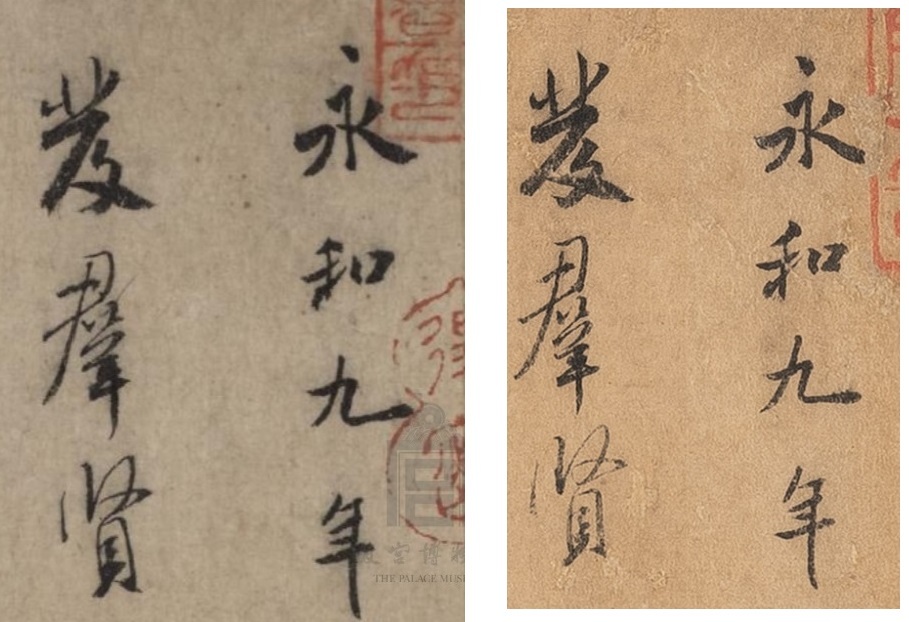 永和九年
發羣賢
宮博
THE PALACE MUS
永和九年
發羣賢